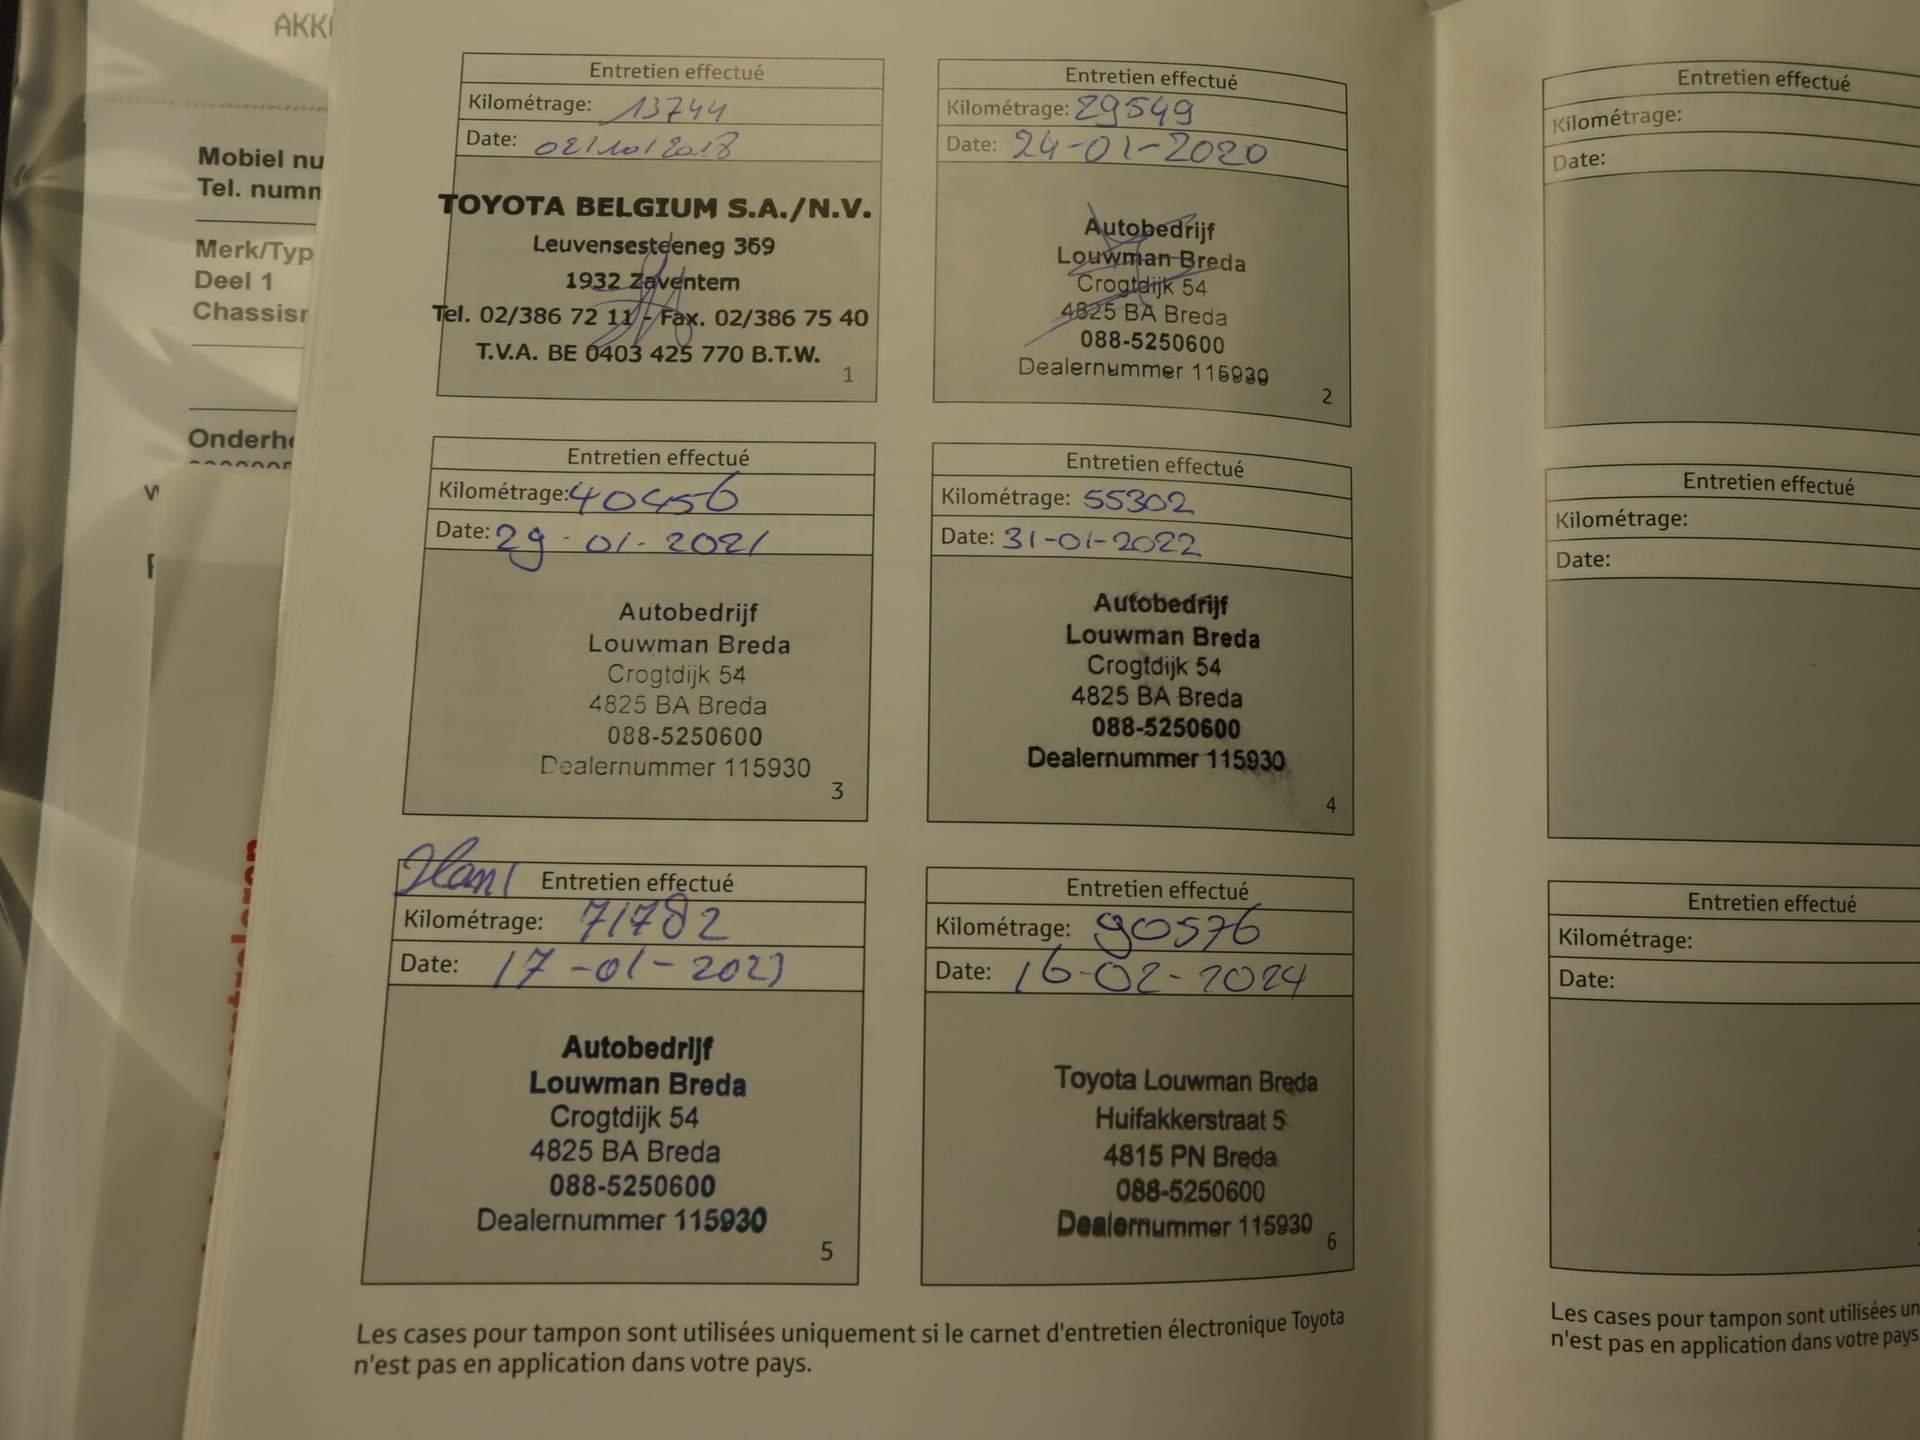 AKK
Mobiel nu
Tel. numm
Merk/Typ
Deel 1
Chassisr
Onderh
Entretien effectué
Kilométrage: 13744
Date: 02/10/2018
TOYOTA BELGIUM S.A./N.V.
Leuvensesteeneg 369
1932 Zaventem
Tel. 02/386 72 11 - Fax. 02/386 75 40
T.V.A. BE 0403 425 770 B.T.W.
1
Entretien effectué
Kilométrage: 29549
Date: 24-01-2020
Autobedrijf
Louwman Breda
Crogtdijk 54
4825 BA Breda
088-5250600
Dealernummer 115930
2
Entretien effectué
Kilométrage: 40456
Date: 29-01-2021
Autobedrijf
Louwman Breda
Crogtdijk 54
4825 BA Breda
088-5250600
Dealernummer 115930
3
Entretien effectué
Kilométrage: 55302
Date: 31-01-2022
Autobedrijf
Louwman Breda
Crogtdijk 54
4825 BA Breda
088-5250600
Dealernummer 115930
4
Entretien effectué
Kilométrage: 71782
Date: 17-01-2023
Autobedrijf
Louwman Breda
Crogtdijk 54
4825 BA Breda
088-5250600
Dealernummer 115930
5
Entretien effectué
Kilométrage: 90576
Date: 16-02-2024
Toyota Louwman Breda
Huifakkerstraat 5
4815 PN Breda
088-5250600
Dealernummer 115930
6
Les cases pour tampon sont utilisées uniquement si le carnet d'entretien électronique Toyota
n'est pas en application dans votre pays.
Entretien effectué
Kilométrage:
Date:
Entretien effectué
Kilométrage:
Date:
Entretien effectué
Kilométrage:
Date:
Les cases pour tampon sont utilisées un
n'est pas en application dans votre pays